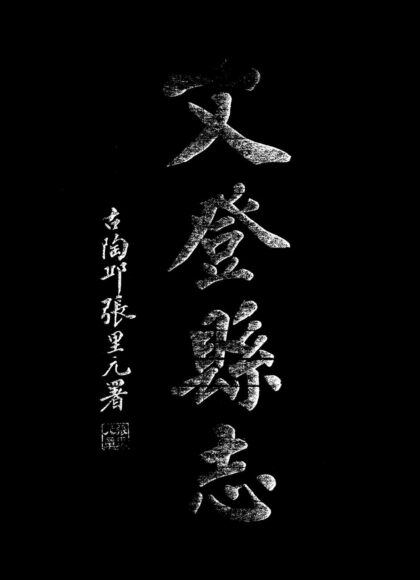 文登縣志
古陶邱張里元署